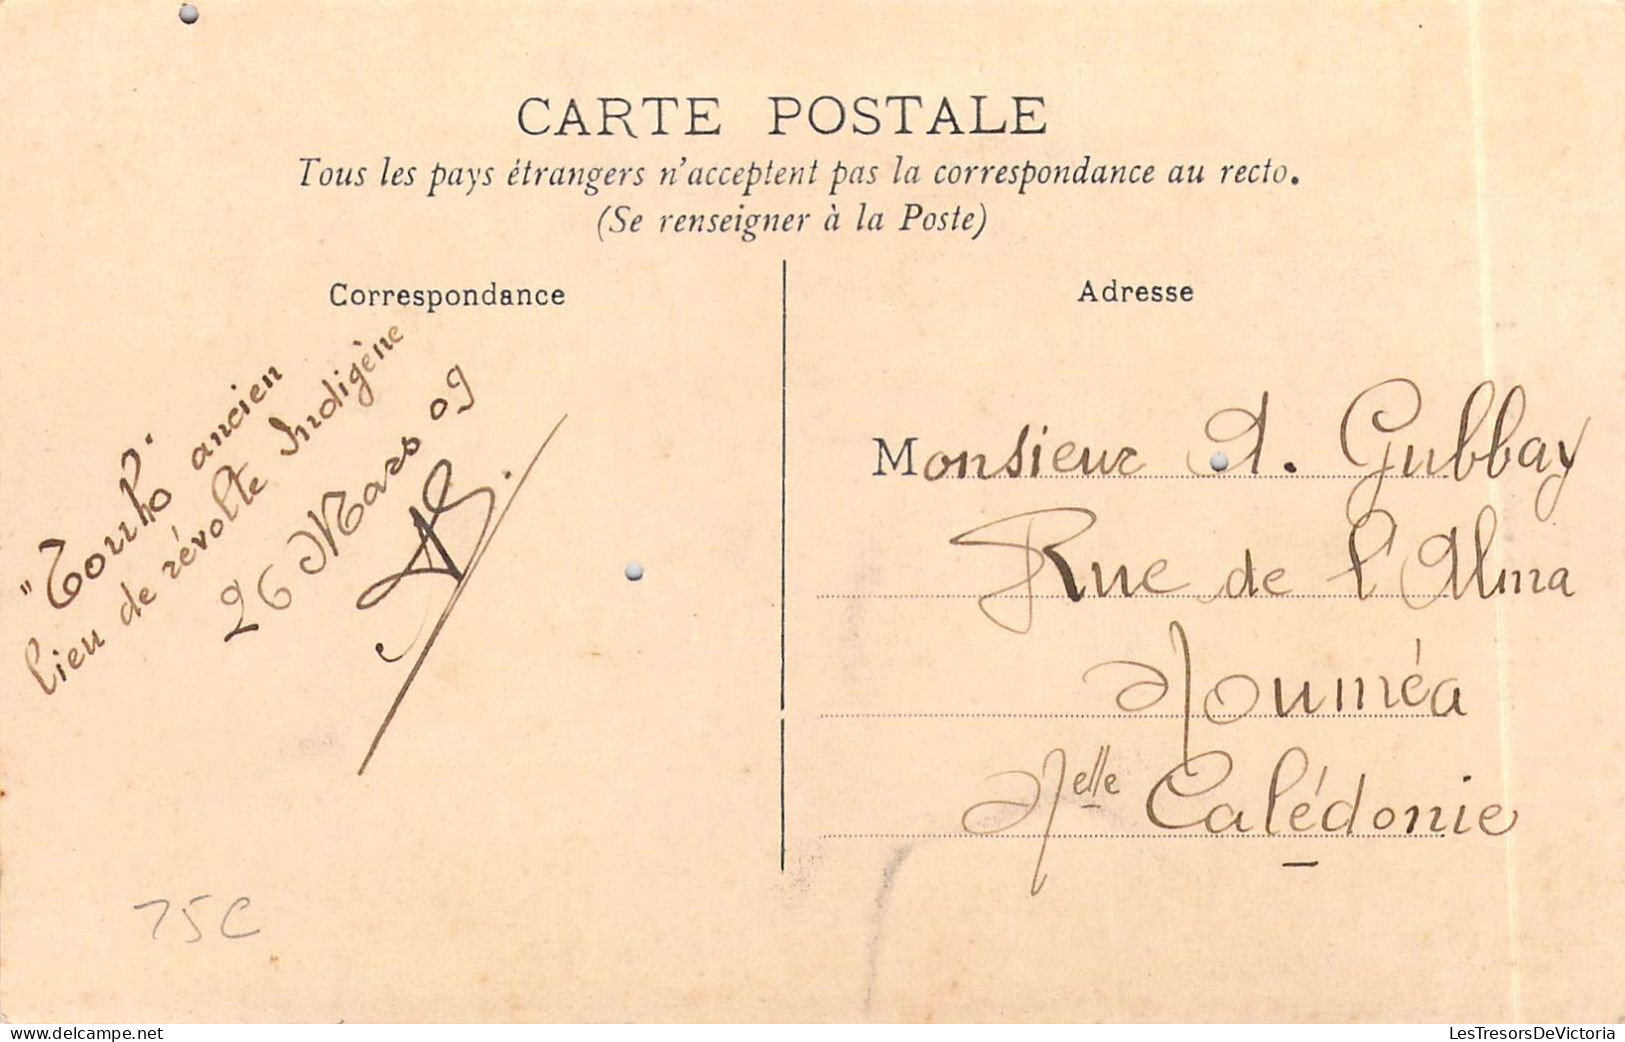 CARTE POSTALE
Tous les pays étrangers n'acceptent pas la correspondance au recto.
(Se renseigner à la Poste)
Correspondance
"Tourho" ancien
lieu de révolte Indigène
26 Mars 09
Adresse
Monsieur A. Gubbay
Rue de l'Alma
Nouméa
Nelle Calédonie
75C
delcampe.net
LesTresorsDeVictoria